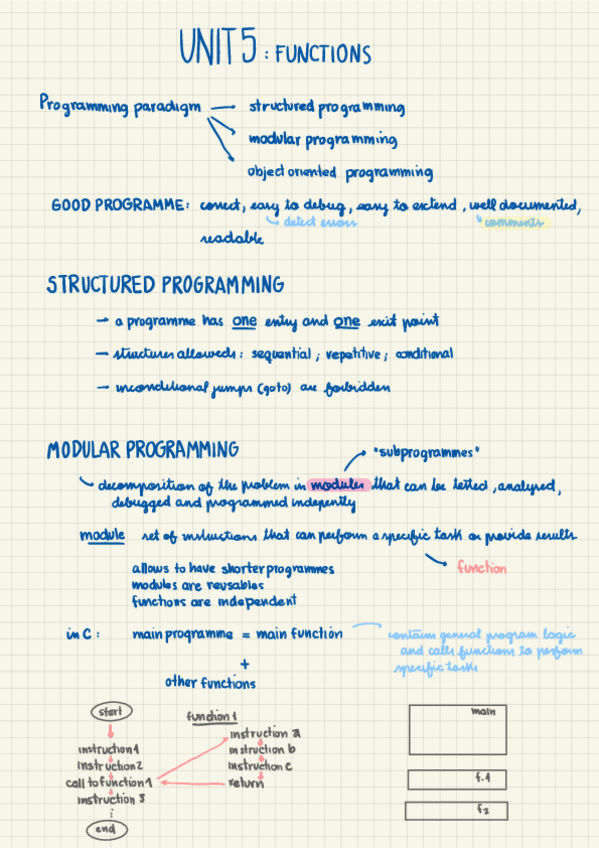 UNIT 5 : FUNCTIONS
Programming paradigm → structured programming
modular programming
object oriented programming
GOOD PROGRAMME: correct, easy to debug, easy to extend, well documented,
detect errors comments
readable
STRUCTURED PROGRAMMING
→ a programme has one entry and one exit point
→ structures alloweds: sequential ; repetitive ; conditional
→ inconditional jumps (goto) are forbidden
MODULAR PROGRAMMING
"subprogrammes"
decomposition of the problem in modules that can be tested, analysed,
debugged and programmed indepently
module set of instructions that can perform a specific task or provide results
function
allows to have shorter programmes
modules are reusables
functions are independent
in C: main programme = main function
contains general program logic
and calls functions to perform
specific tasks
+
other functions
start
instruction 1
instruction 2
call to function 1
instruction 3
⋮
end
function 1
instruction a
instruction b
instruction c
return
main
f.1
f2